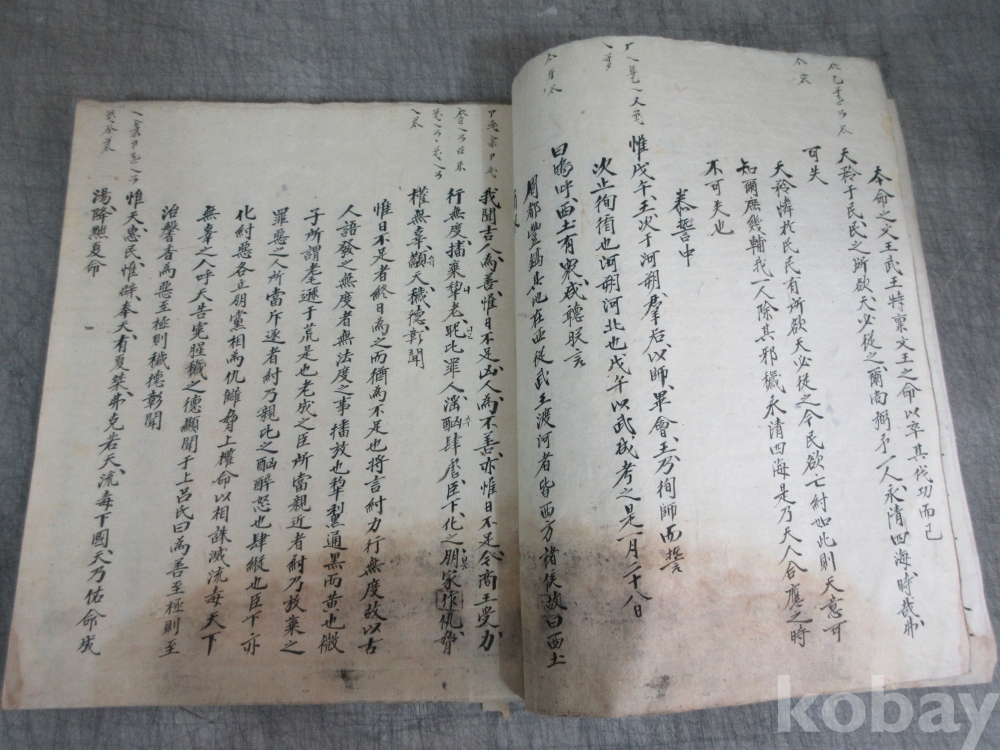 本命之文王武王特稟文王之命以卒其伐功而已
天矜于民民之所欲天必從之爾尚弼予一人永清四海時哉弗
可失
天矜憐於民民有所欲天必從之今民欲亡紂如此則天意可
知爾庶幾輔我一人除其邪穢永清四海是乃天人合應之時
不可失也
泰誓中
惟戊午王次于河朔羣后以師畢會王乃徇師而誓
次止徇循也河朔河北也戊午以武成考之是一月二十八日
曰嗚呼西土有衆咸聽朕言
周都豐鎬其地在西從武王渡河者皆西方諸侯故曰西土
我聞吉人爲善惟日不足凶人爲不善亦惟日不足今商王受力
行無度播棄犂老昵比罪人淫酗肆虐臣下化之朋家作仇脅
權無辜籲天穢德彰聞
惟日不足者終日爲之而猶爲不足也將言紂力行無度故以古
人語發之無度者無法度之事播放也犂黧通黑而黃也微
子所謂耄遜于荒是也老成之臣所當親近者紂乃放棄之
罪惡之人所當斥逐者紂乃親比之酗醉怒也肆縱也臣下亦
化紂惡各立朋黨相爲仇讎脅上權命以相誅滅流毒天下
無辜之人呼天告寃腥穢之德顯聞于上呂氏曰爲善至極則至
治馨香爲惡至極則穢德彰聞
惟天惠民惟辟奉天有夏桀弗克若天流毒下國天乃佑命成
湯降黜夏命
kobay